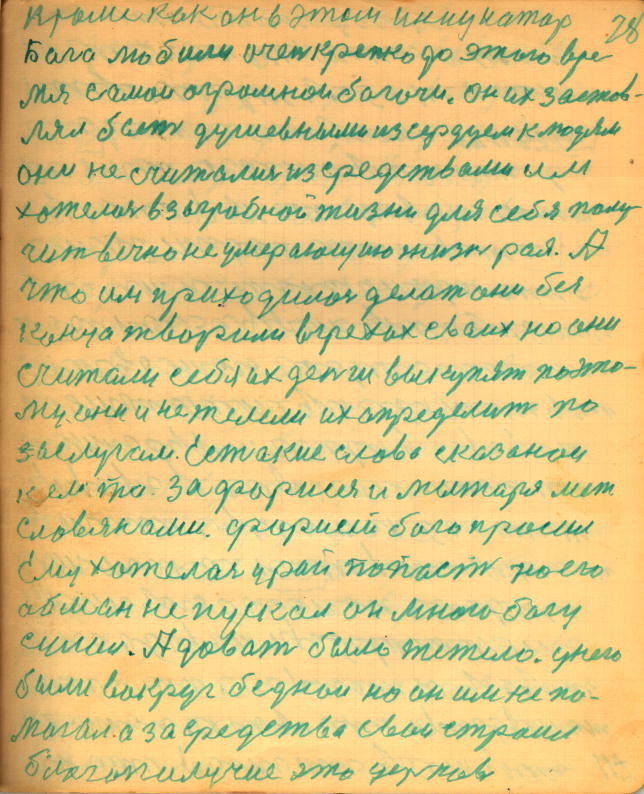 кроме как он в этом инициатор 28
Бога любили очен крепко до этого вре
мя самои огромнои богочи. он их застов-
лял быт душевными из сердцем к людям
они не считалися из средствами им
хотелося в загробной жизни для себя полу
чит вечно не умерающую жизн рая. А
что им приходилося делат они без
конца творили в грехах своих но они
считали себя их денги выкупят поэто-
му они и не желели их определит по
заслугам. Ест такие слова сказанои
кем то. за фарисея и мытаря меж
словянами. фарисей бога просил
Ему хотелося у рай попаст но его
обман не пускал он много богу
сулил. А доват было тежело. у него
были вокруг бедной но он им не по-
могал. а за средства свои строил
благополучие это церков